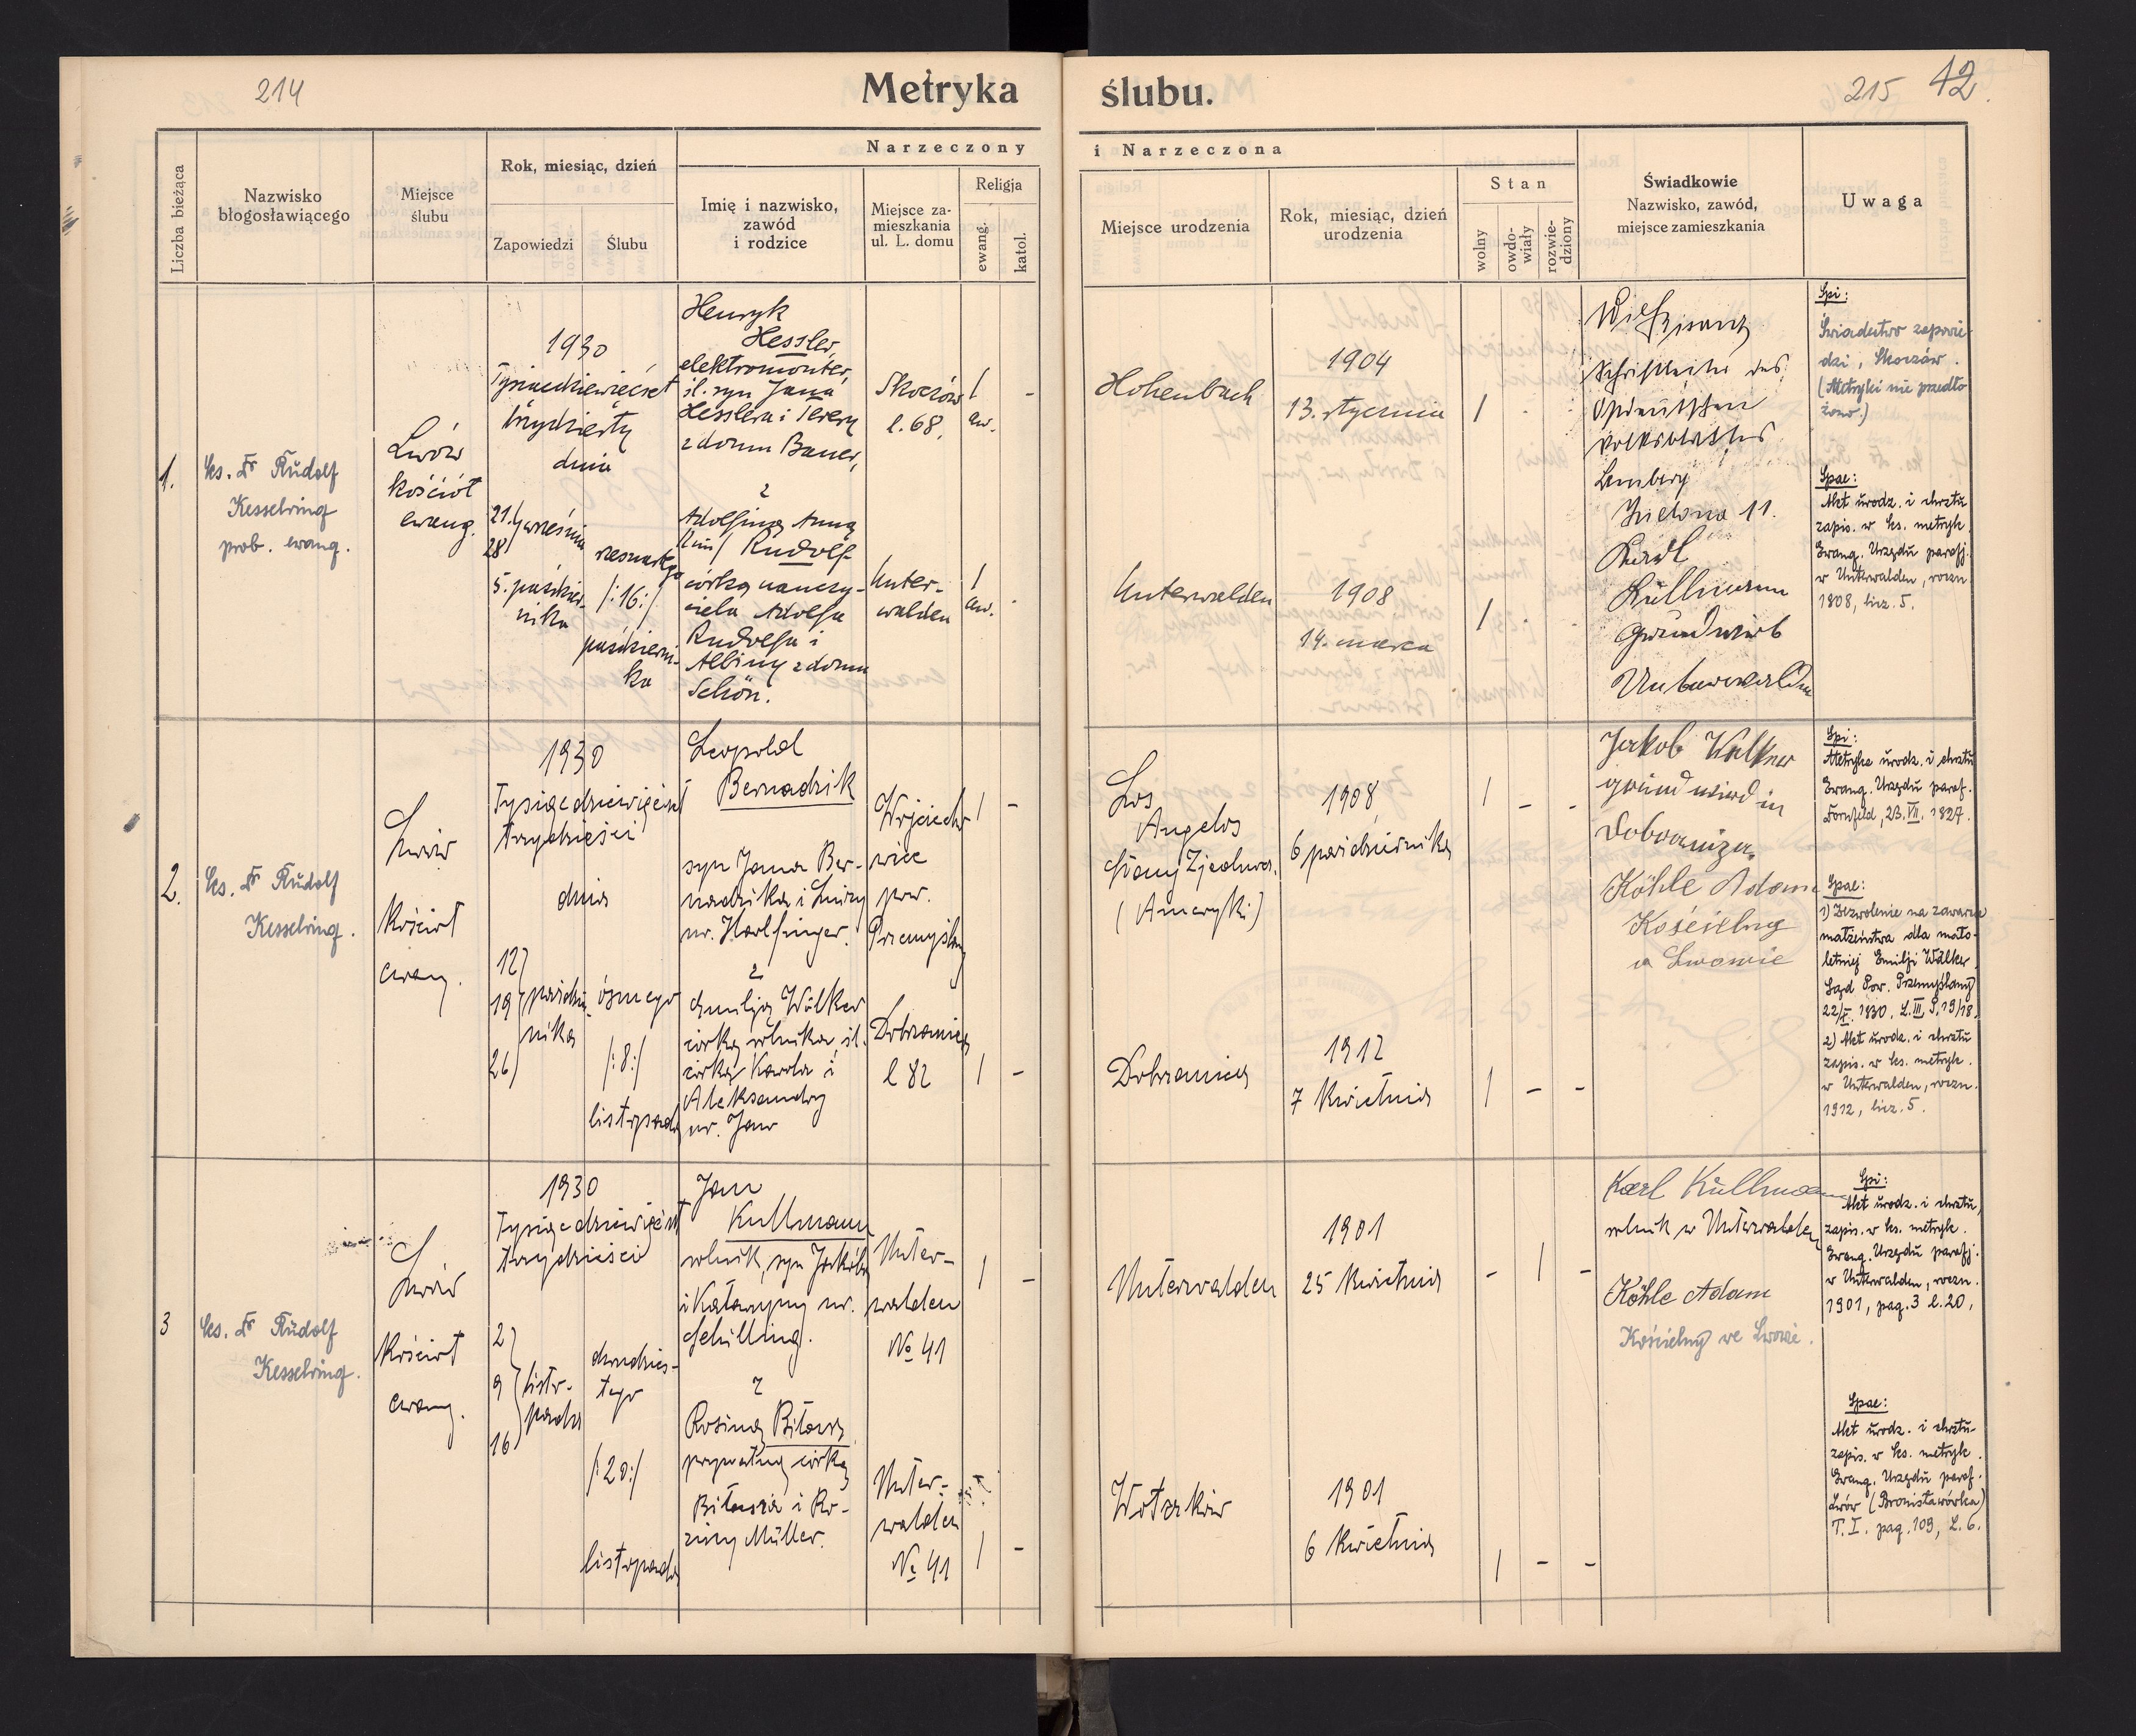 214
Metryka
ślubu.
215 42.
Liczba bieżąca
Nazwisko
błogosławiącego
Miejsce
ślubu
Rok, miesiąc, dzień
Zapowiedzi
Ślubu
Narzeczony
Imię i nazwisko,
zawód
i rodzice
Miejsce za-
mieszkania
ul. L. domu
Religja
ewang.
katol.
i Narzeczona
Miejsce urodzenia
Rok, miesiąc, dzień
urodzenia
Stan
wolny
owdo-
wiały
rozwie-
dziony
Świadkowie
Nazwisko, zawód,
miejsce zamieszkania
Uwaga
1.
Ks. Dr Rudolf
Kesselring
prob. ewang.
Lwów
kościół
ewang.
1930
Tysiącdziewięćset
trzydzieści
dnia
21.
28
września
5. paździer-
nika
szesnastego
/:16:/
październi-
ka
Henryk
Hessler,
elektromonter,
śl. syn Jana
Hesslera i Teresy
z domu Bauer,
z
Adolfiną Anną
Rudolf
córką nauczy-
ciela Adolfa
Rudolfa i
Albiny z domu
Schön.
Skoczów
l. 68.
Unter-
walden
/
aw.
-
/
aw.
Hohenbach
1904
13. stycznia
/
Unterwalden
1908
14. marca
/
Schriftleiter des
Ostdeutschen
Volksblattes
Lemberg
Zielona 11.
Karl
Kullmann
Grundwirt
Unterwalden
Spi:
Świadectwo zapowie-
dzi, Skoczów.
(Metryki nie przedło-
żono.)
Spae:
Akt urodz. i chrztu
zapis. w ks. metryk
Ewang. Urzędu parafj.
w Unterwalden, roczn
1908, licz. 5.
2.
Ks. Dr Rudolf
Kesselring.
Lwów
Kościół
ewang.
1930
Tysiącdziewięćset
trzydzieści
dnia
12
19
26
paździer-
nika
ósmego
/:8:/
listopada
Leopold
Bernadzik
syn Jana Ber-
nadzika i Luizy
ur. Harlfinger.
z
Emilją Wölker
córką rolnika, śl.
córką Karola i
Aleksandry
ur. Jaw
Wojciecho
wice
pow.
Przemyślany
Dobrzanica
l 82
/ -
/ -
Los
Angelos
Stany Zjednocz.
(Ameryki)
1908
6 października
/ - -
Dobrzanica
1912
7 kwietnia
/ - -
Jakob Walker
Grundwirt in
Dobraniza.
Köhle Adam
Kościelny
w Lwowie
Spi:
Metryka urodz. i chrztu
Ewang. Urzędu paraf.
Dornfeld, 23. VII. 1927.
Spae:
1) Zezwolenie na zawarcie
małżeństwa dla mało-
letniej Emilji Wölker
Sąd Pow. Przemyślany
22/X. 1930, L. III P. 19/18.
2) Akt urodz. i chrztu
zapis. w ks. metryk.
w Unterwalden, roczn.
1912, licz. 5.
3
Ks. Dr Rudolf
Kesselring.
Lwów
Kościół
ewang.
1930
Tysiącdziewięćset
trzydzieści
2
9
16
listo-
pada
dwudzies-
tego
/:20:/
listopada
Jan
Kullmann
rolnik, syn Jakóba
i Katarzyny ur.
Schilling.
z
Rosiną Bitausz
prywatną córką
Bitausza i Ro-
ziny Müller.
Unter-
walden
№ 41
Unter-
walden
№ 41
/ -
/ -
Unterwalden
1901
25 kwietnia
- / -
Wołzków
1901
6 kwietnia
/ - -
Karl Kullmann
rolnik w Unterwalden
Köhle Adam
Kościelny we Lwowie.
Spi:
Akt urodz. i chrztu,
zapis. w ks. metryk.
Ewang. Urzędu parafj.
w Unterwalden, roczn.
1901, pag. 3 l. 20.
Spae:
Akt urodz. i chrztu
zapis. w ks. metryk.
Ewang. Urzędu paraf.
Lwów (Bronisławówka)
T. I. pag. 109, L. 6.